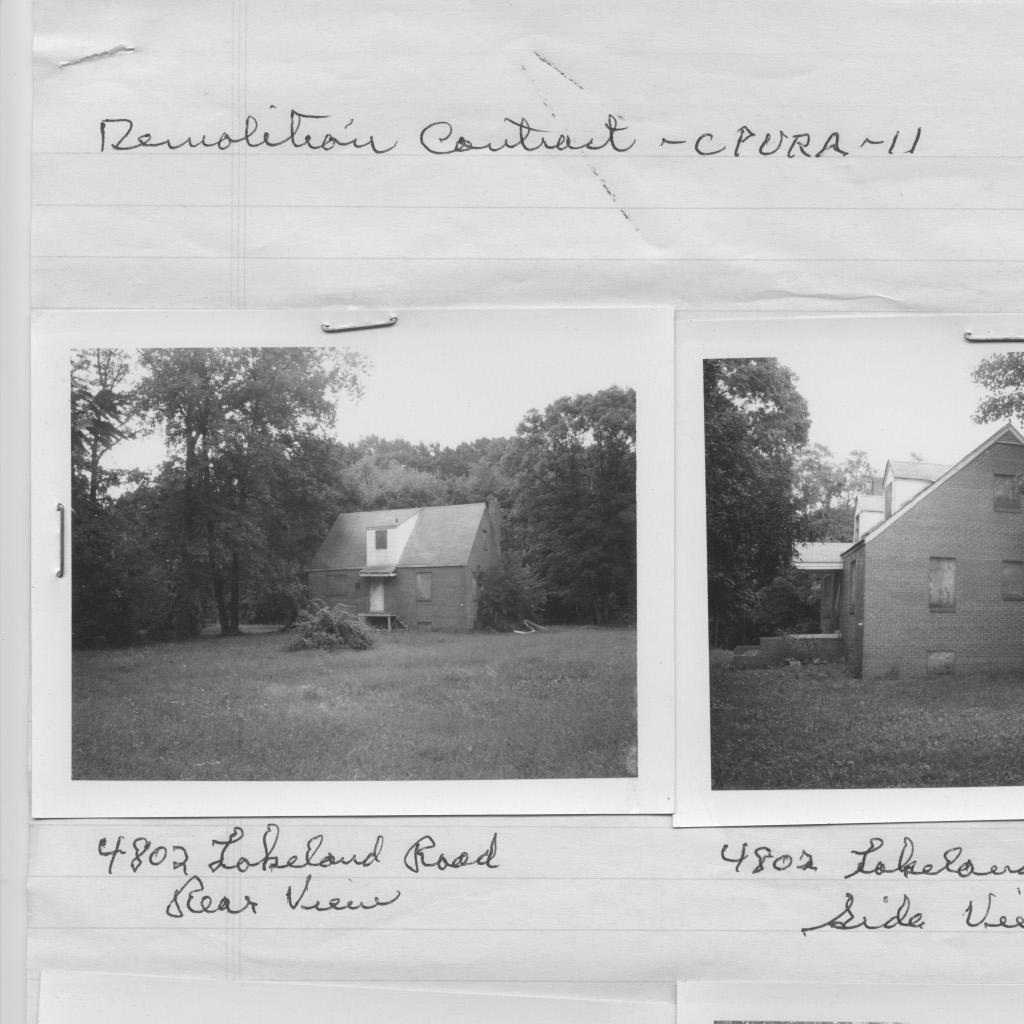 Demolition Contract - CPURA - 11
4802 Lakeland Road
Rear View
4802 Lakeland
Side View